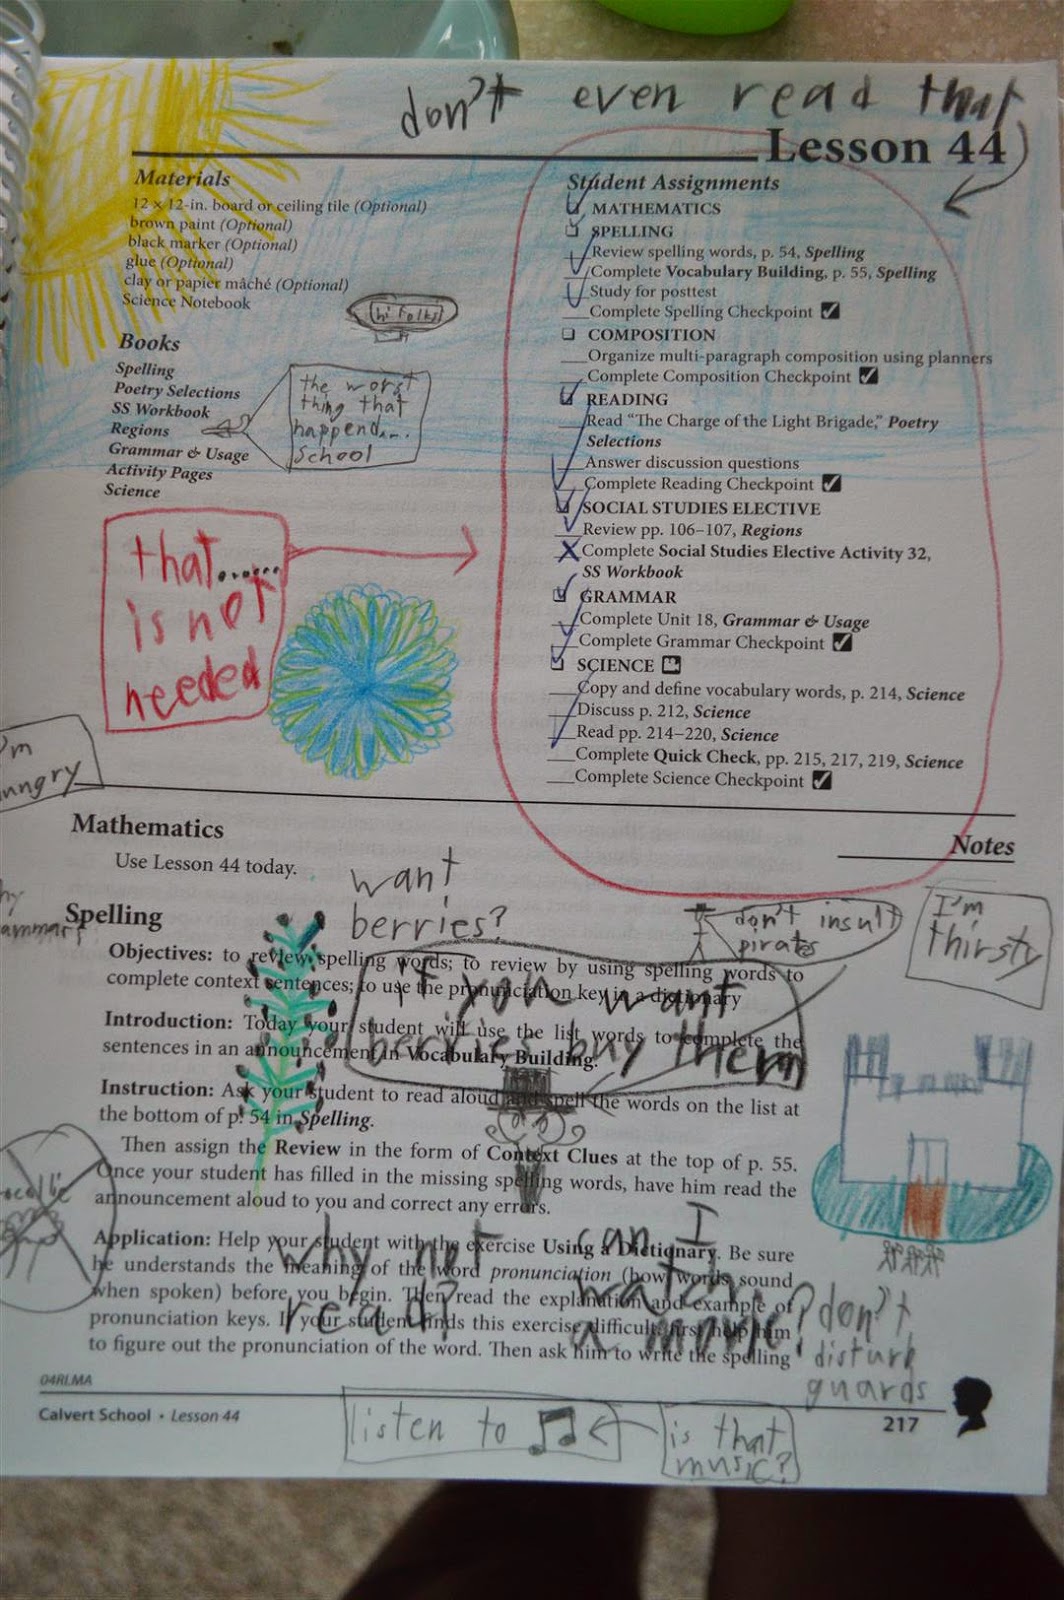 don't even read that
Lesson 44
Materials
12 x 12-in. board or ceiling tile (Optional)
brown paint (Optional)
black marker (Optional)
glue (Optional)
clay or papier mâché (Optional)
Science Notebook
hi folks
Books
Spelling
Poetry Selections
SS Workbook
Regions
Grammar & Usage
Activity Pages
Science
the worst
thing that
happend....
School
that......
is not
needed
Student Assignments
MATHEMATICS
SPELLING
Review spelling words, p. 54, Spelling
Complete Vocabulary Building, p. 55, Spelling
Study for posttest
Complete Spelling Checkpoint
COMPOSITION
Organize multi-paragraph composition using planners
Complete Composition Checkpoint
READING
Read "The Charge of the Light Brigade," Poetry
Selections
Answer discussion questions
Complete Reading Checkpoint
SOCIAL STUDIES ELECTIVE
Review pp. 106–107, Regions
Complete Social Studies Elective Activity 32,
SS Workbook
GRAMMAR
Complete Unit 18, Grammar & Usage
Complete Grammar Checkpoint
SCIENCE
Copy and define vocabulary words, p. 214, Science
Discuss p. 212, Science
Read pp. 214–220, Science
Complete Quick Check, pp. 215, 217, 219, Science
Complete Science Checkpoint
Notes
Mathematics
Use Lesson 44 today.
want
berries?
don't insult
pirates
I'm
thirsty
Spelling
Objectives: to review spelling words; to review by using spelling words to
complete context sentences; to use the pronunciation key in a dictionary
if you want
berries buy them
Introduction: Today your student will use the list words to complete the
sentences in an announcement in Vocabulary Building.
Instruction: Ask your student to read aloud and spell the words on the list at
the bottom of p. 54 in Spelling.
Then assign the Review in the form of Context Clues at the top of p. 55.
Once your student has filled in the missing spelling words, have him read the
announcement aloud to you and correct any errors.
Application: Help your student with the exercise Using a Dictionary. Be sure
he understands the meaning of the word pronunciation (how words sound
when spoken) before you begin. Then read the explanation and example of
pronunciation keys. If your student finds this exercise difficult, first help him
to figure out the pronunciation of the word. Then ask him to write the spelling
why not
read?
can I
watch
a movie?
don't
disturb
guards
04RLMA
Calvert School • Lesson 44
217
listen to
is that
music?